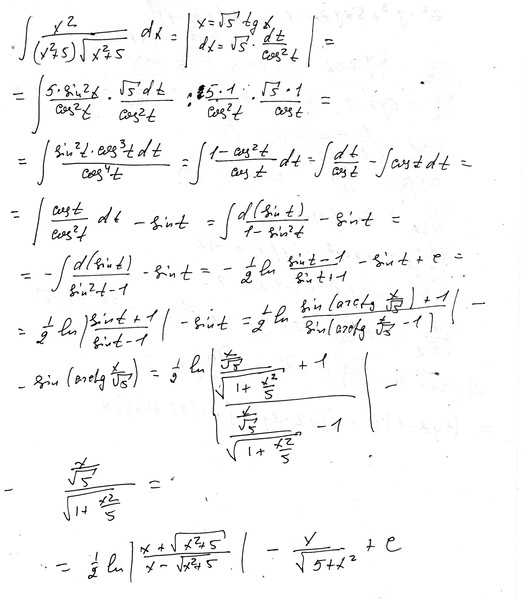 ∫ x² / ((x²+5)√(x²+5)) dx = | x = √5 tg t, dx = √5 · dt/cos²t | =
= ∫ 5·sin²t/cos²t · √5 dt/cos²t : 5·1/cos²t · √5·1/cos t =
= ∫ sin²t·cos³t dt / cos⁴t = ∫ (1−cos²t)/cos t dt = ∫ dt/cos t − ∫ cos t dt =
= ∫ cos t/cos²t dt − sin t = ∫ d(sin t)/(1−sin²t) − sin t =
= −∫ d(sin t)/(sin²t−1) − sin t = −½ ln (sin t−1)/(sin t+1) − sin t + c =
= ½ ln |(sin t+1)/(sin t−1)| − sin t = ½ ln (sin(arctg x/√5)+1)/(sin(arctg x/√5 −1)) | −
− sin (arctg x/√5) = ½ ln | (x/√5 / √(1+x²/5) + 1) / (x/√5 / √(1+x²/5) − 1) | −
− x/√5 / √(1+x²/5) =
= ½ ln | (x+√(x²+5))/(x−√(x²+5)) | − x/√(5+x²) + c